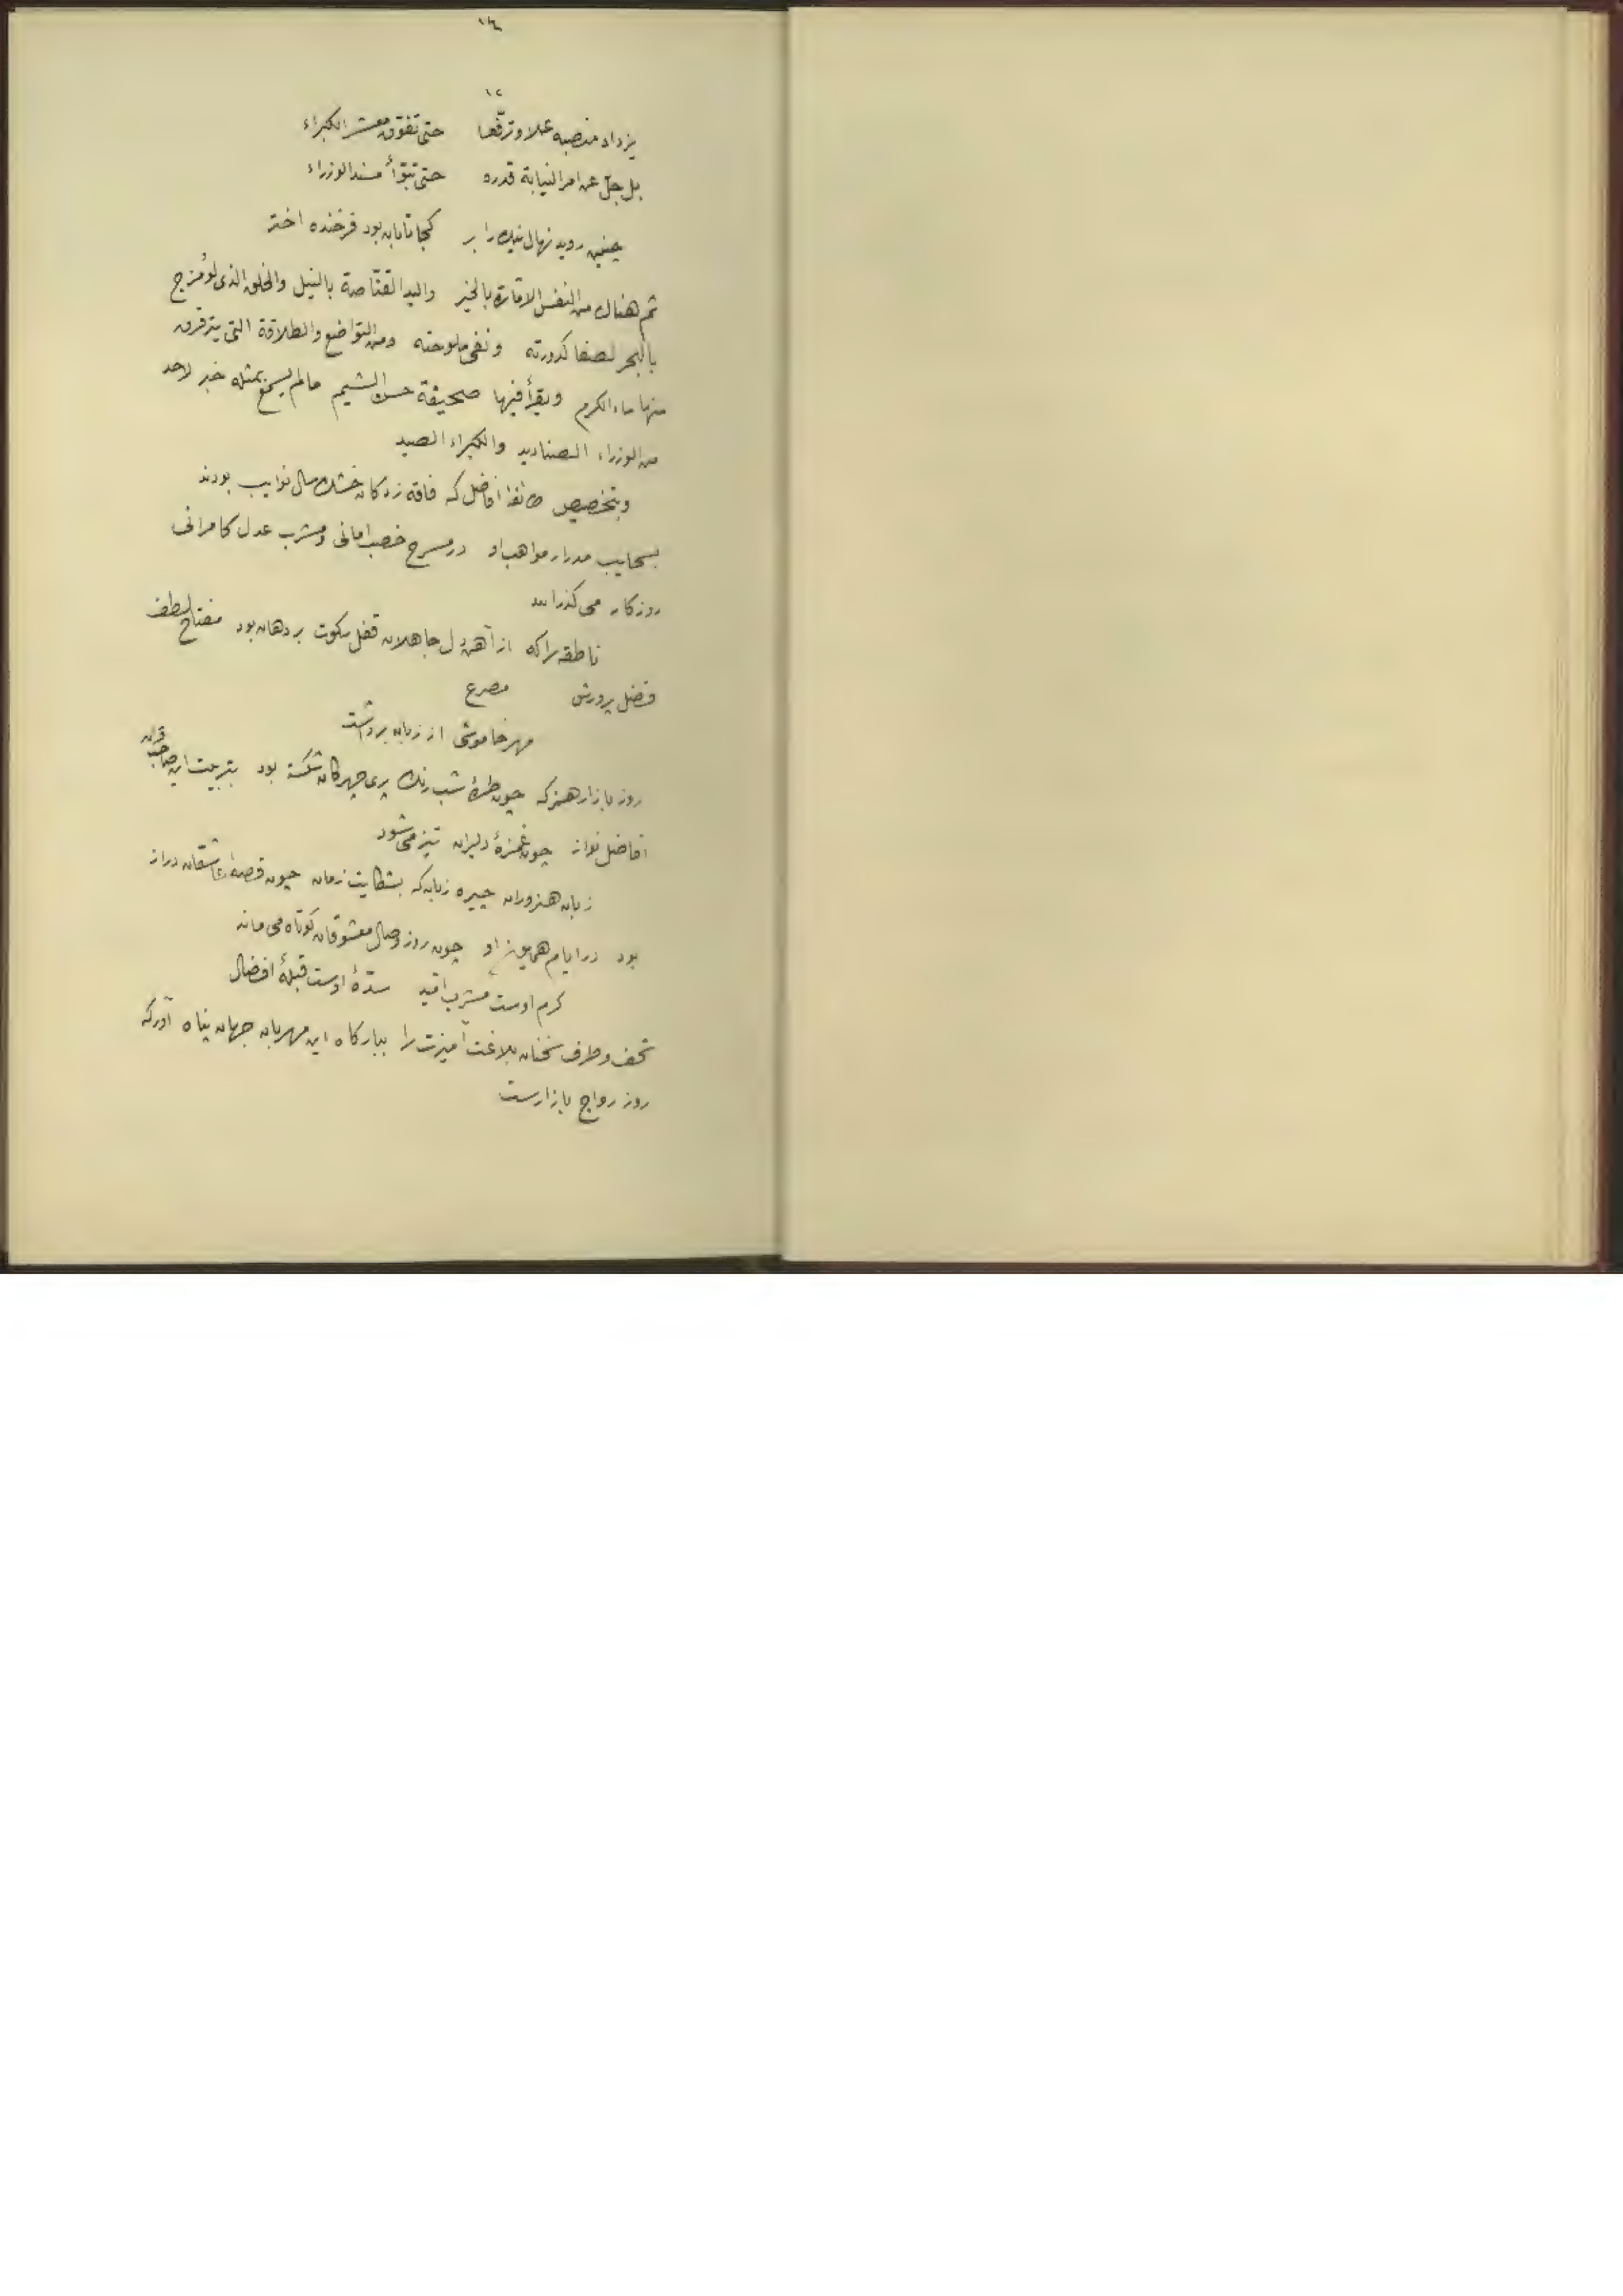 ١٤
١٢
يزداد منصبه علا وترفّعا حتى تفوّق معشر الكبراء
بل جلّ عن امر النيابة قدره حتى تبوّأ مسند الوزراء
چنین روید نهال نیک را بر کجا تابان بود فرخنده اختر
ثم هناك من النفس الامّارة بالخير واليد القنّاصة بالنيل والخلق الذى لو مُزج
بالبحر لصفا كدورته ونفى ملوحته ومن التواضع والطلاقة التى يترقرق
منها ماء الكرم ويقرأ فيها صحيفة حسن الشيم مالم يسمع بمثله خبر لاحد
من الوزراء الصناديد والكبراء الصيد
وبتخصيص طائفۀ افاضل که فاقه زدکان خشک سال نوایب بودند
بسحایب مدرار مواهب او در مسرح خصب امانی ومشرب عدل کامرانی
روزکار می کذرانند
ناطقه را که از آهن دل جاهلان قفل سکوت بر دهان بود مفتاح لطف
فضل پرورش مصرع
مهر خاموشی از زبان برداشت
روز بازار هنر که چون طرۀ شب رنك پری چهرکان شکسته بود بتربیت این صاحب قران
افاضل نواز چون غمزۀ دلبران تیز می شود
زبان هنروران چیره زبان که بشکایت زمان چون قصۀ عاشقان دراز
بود در ایام همایون او چون روز وصال معشوقان کوتاه می ماند
کرم اوست مشرب امّید سدّۀ اوست قبلۀ افضال
تحف وطرف سخنان بلاغت آمیزت را ببارکاه این مهربان جهان پناه آور که
روز رواج بازارست